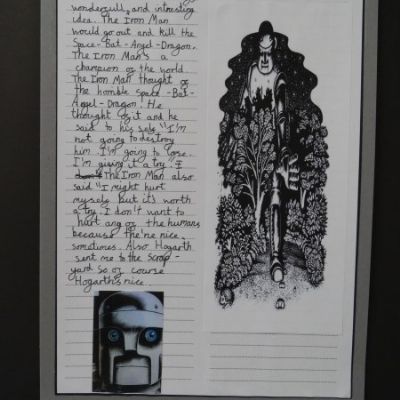 wondercull, and intresting
idea. The Iron Man
would go out and kill the
Space-Bat-Angel-Dragon.
The Iron Man's a
champion of the world
The Iron Man thought of
the horrible space-Bat-
Angel-Dragon. He
thought of it and he
said to his self "I'm
not going to destroy
him I'm going to lose.
I'm giving it a try."
The Iron Man also
said "I might hurt
myself but it's worth
a try. I don't want to
hurt any of the humans
because the're nice
sometimes. Also Hogarth
sent me to the Scrap-
yard so of course
Hogarth's nice.